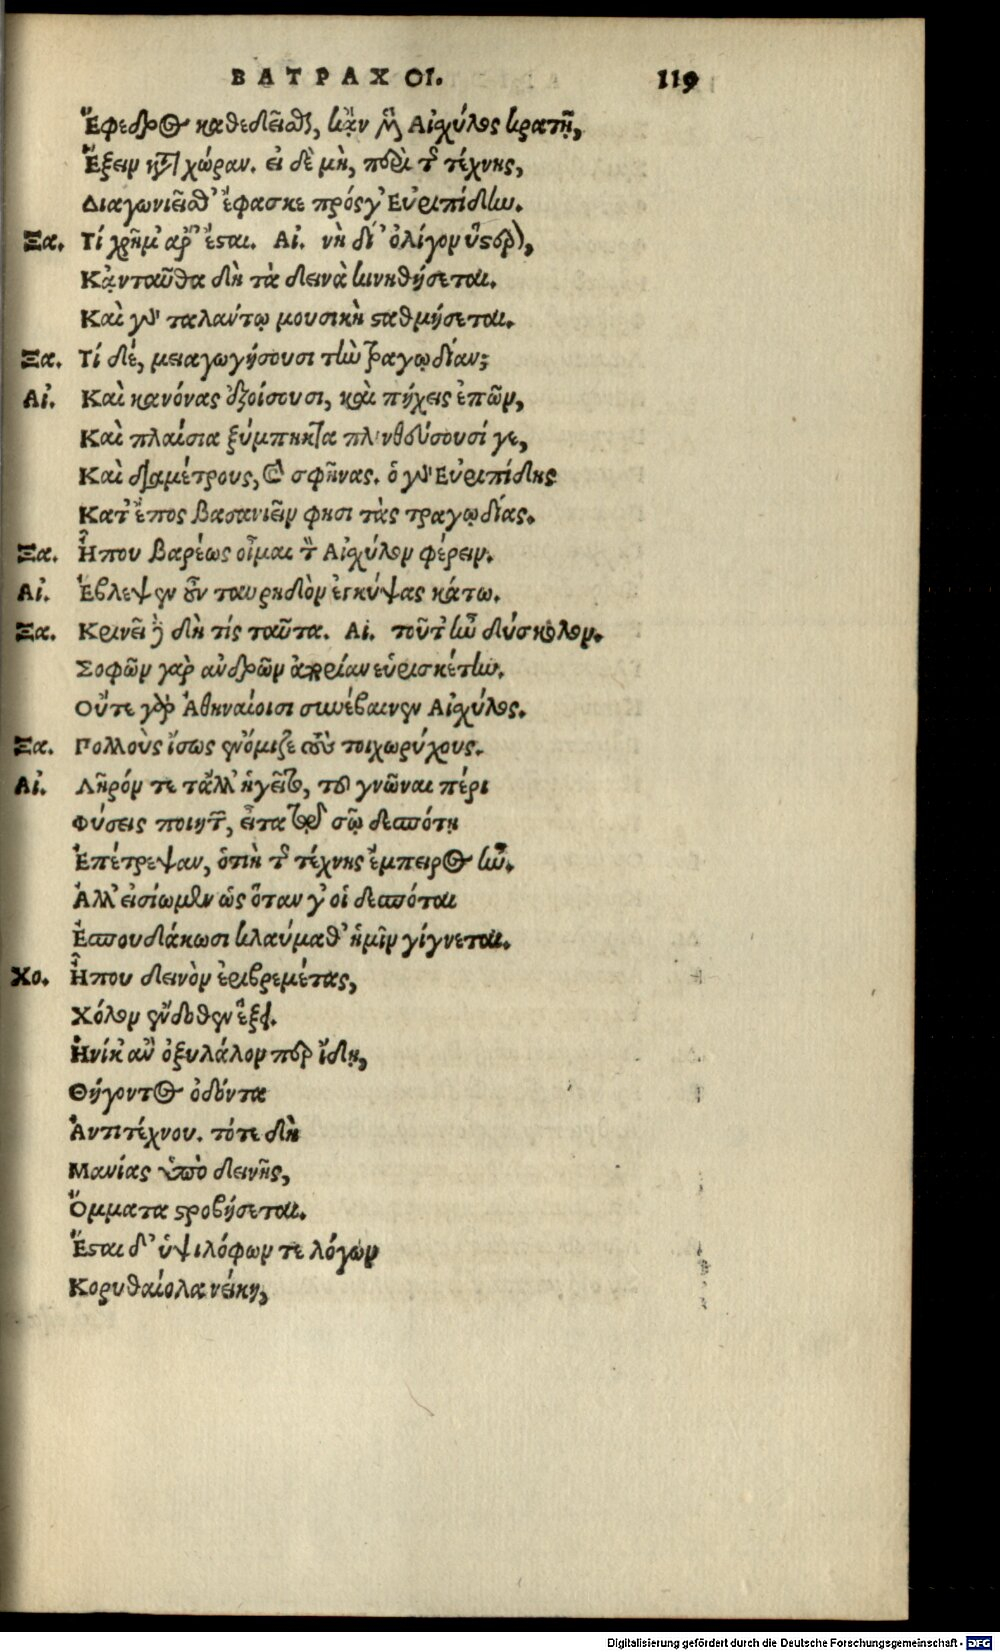 ΒΑΤΡΑΧΟΙ. 119
Ἔφεδρος καθεδεῖσθαι, κᾂν μὲν Αἰχύλος κρατῇ,
Ἕξειν κατὰ χώραν. εἰ δὲ μὴ, περὶ τῆς τέχνης,
Διαγωνιεῖσθ' ἔφασκε πρός γ' Εὐριπίδην.
Ξα. Τί χρῆμ' ἆρ' ἔσται. Αἰ. νὴ δί' ὀλίγον ὕστερον,
Κᾀνταῦθα δὴ τὰ δεινὰ κινηθήσεται.
Καὶ γὰρ ταλάντῳ μουσικὴ σταθμήσεται.
Ξα. Τί δέ, μειαγωγήσουσι τὴν τραγῳδίαν;
Αἰ. Καὶ κανόνας ἐξοίσουσι, καὶ πήχεις ἐπῶν,
Καὶ πλαίσια ξύμπηκτα πλινθεύσουσί γε,
Καὶ διαμέτρους, καὶ σφῆνας. ὁ γὰρ Εὐριπίδης
Κατ' ἔπος βασανιεῖν φησι τὰς τραγῳδίας.
Ξα. Ἦπου βαρέως οἶμαι τὸν Αἰχύλον φέρειν.
Αἰ. Ἔβλεψεν οὖν ταυρηδὸν ἐγκύψας κάτω.
Ξα. Κρινεῖ δὲ δὴ τίς ταῦτα. Αἰ. τοῦτ' ἦν δύσκολον.
Σοφῶν γὰρ ἀνδρῶν ἀπορίαν εὑρισκέτην.
Οὔτε γὰρ Ἀθηναίοισι συνέβαινεν Αἰχύλος.
Ξα. Πολλοὺς ἴσως ἐνόμιζε τοὺς τοιχωρύχους.
Αἰ. Λῆρόν τε τἄλλ' ἡγεῖτο, τοῦ γνῶναι πέρι
Φύσεις ποιητῶν, εἶτα τῷ σῷ δεσπότῃ
Ἐπέτρεψαν, ὁτιὴ τῆς τέχνης ἔμπειρος ἦν.
Ἀλλ' εἰσίωμεν ὡς ὅταν γ' οἱ δεσπόται
Ἐσπουδάκωσι κλαύμαθ' ἡμῖν γίγνεται.
Χο. Ἦπου δεινὸν ἐριβρεμέτας,
Χόλον ἔνδοθεν ἕξει.
Ἡνίκ' ἂν ὀξυλάλον περ ἴδῃ,
Θήγοντος ὀδόντα
Ἀντιτέχνου. τότε δὴ
Μανίας ὑπὸ δεινῆς,
Ὄμματα στροβήσεται.
Ἔσται δ' ὑψιλόφων τε λόγων
Κορυθαίολα νείκη,
Digitalisierung gefördert durch die Deutsche Forschungsgemeinschaft - DFG